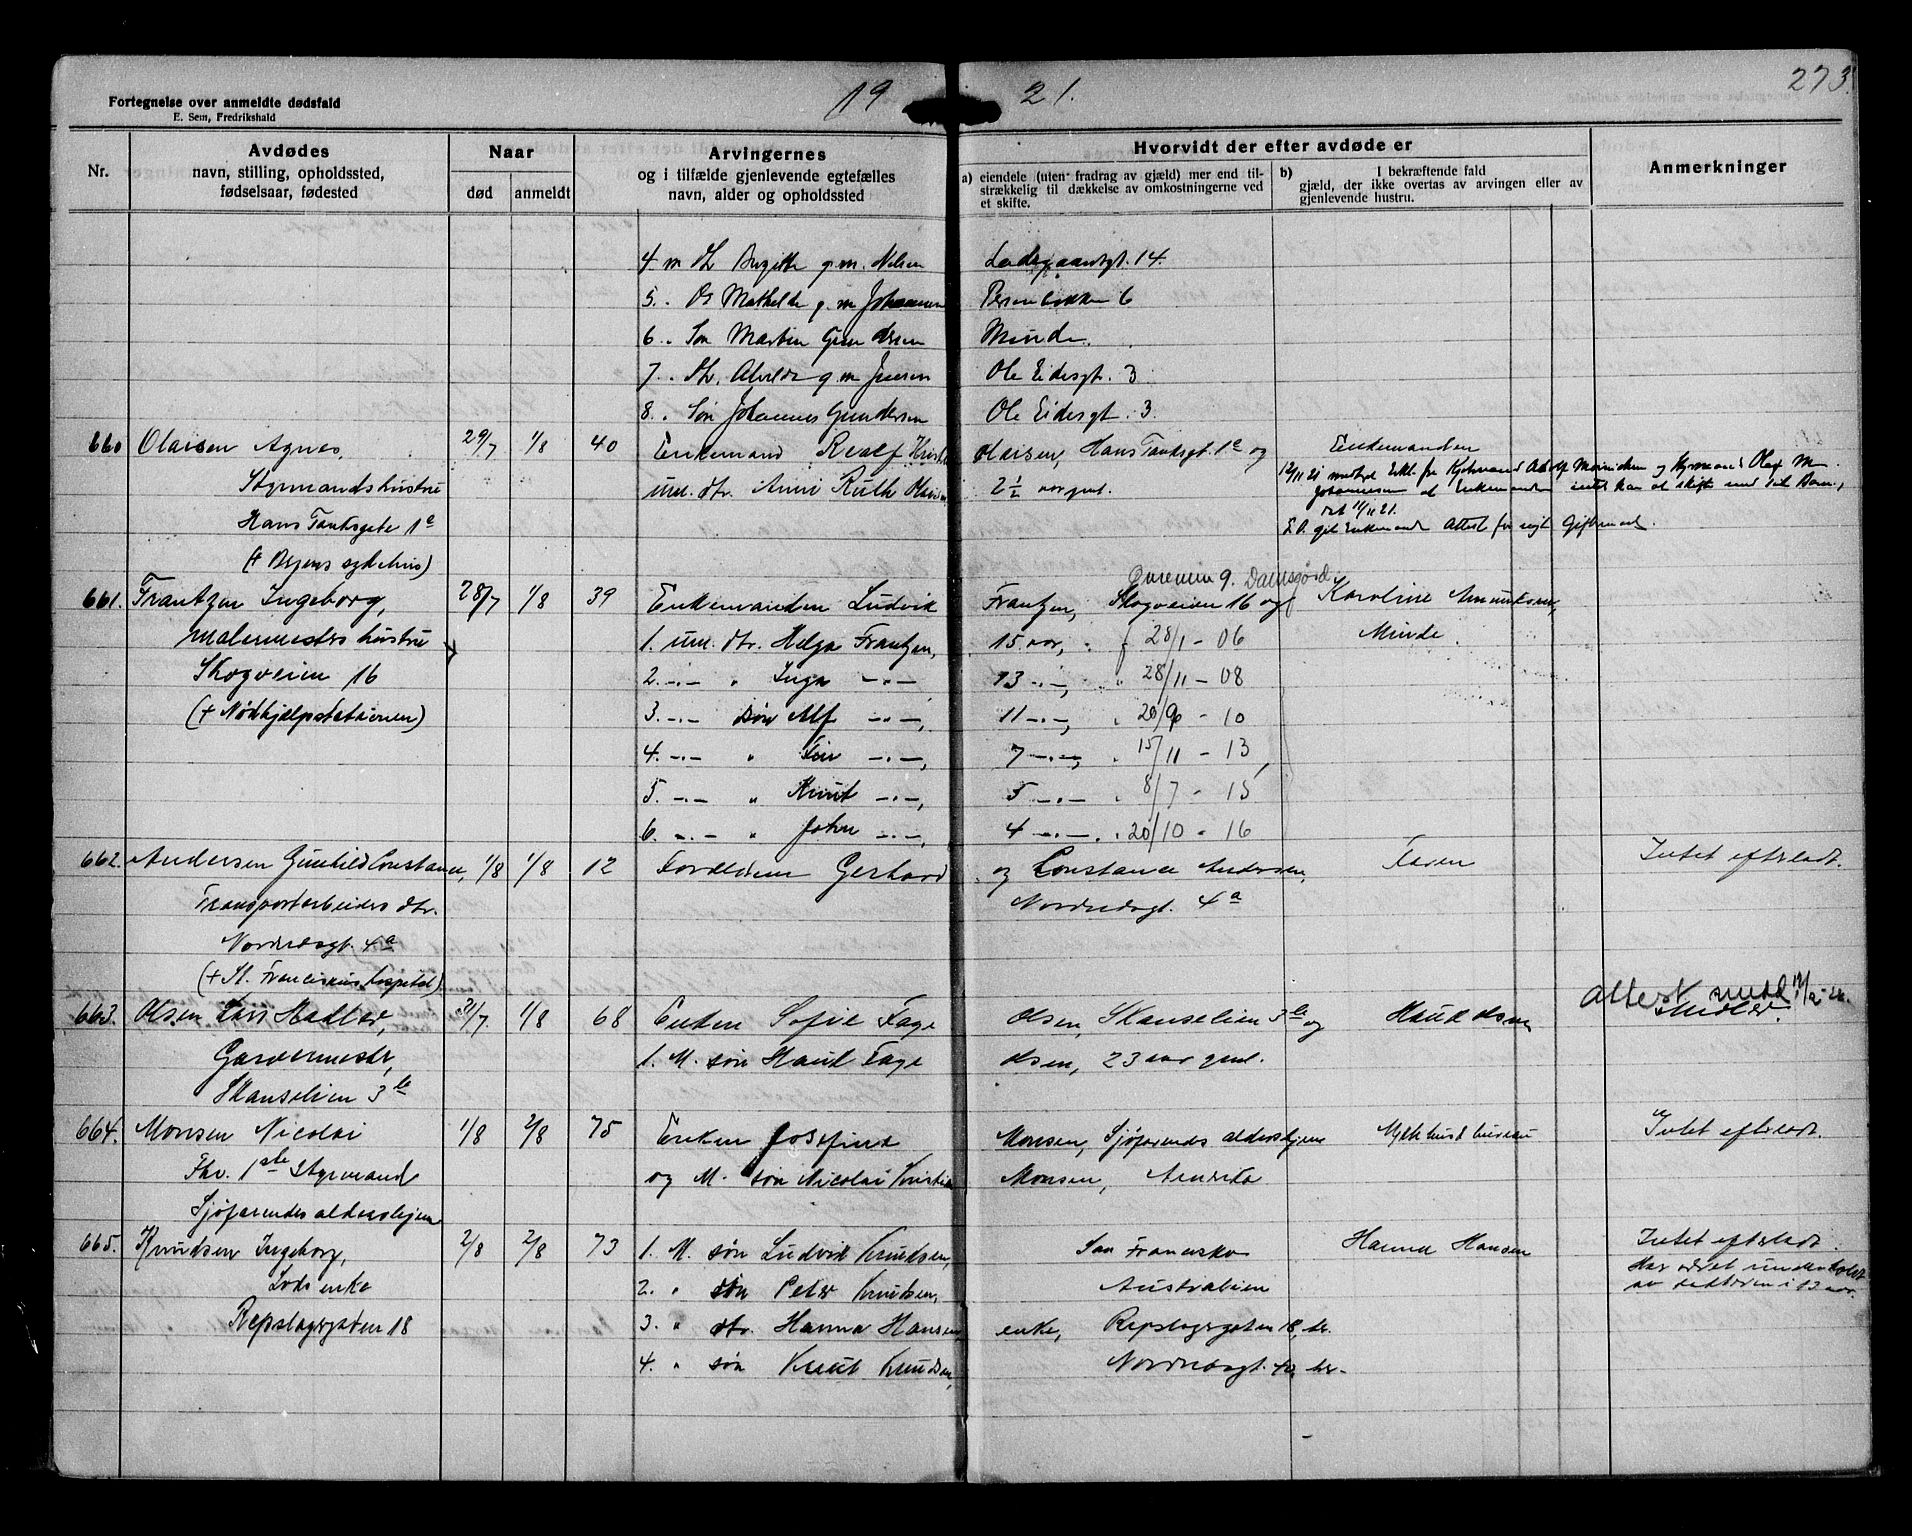 1921.
273.
Fortegnelse over anmeldte dødsfald
E. Sem, Fredrikshald
Nr.
Avdødes
navn, stilling, opholdssted,
fødselsaar, fødested
Naar
død
anmeldt
Arvingernes
og i tilfælde gjenlevende egtefælles
navn, alder og opholdssted
Hvorvidt der efter avdøde er
a) eiendele (uten fradrag av gjæld) mer end til-
strækkelig til dækkelse av omkostningerne ved
et skifte.
b) I bekræftende fald
gjæld, der ikke overtas av arvingen eller av
gjenlevende hustru.
Anmerkninger
4. m dtr Birgitte g.m. Nilsen Ladegaardsgt. 14.
5. " Dr Mathilde g.m Johannesen 6
6. " Søn Martin Gundersen Minde.
7. " dtr. Alvilde g.m Jensen Ole Eidesgt. 3
8. " Søn Johannes Gundersen Ole Eidesgt. 3.
660 Olaisen Agnes, 29/7 1/8 40 Enkemand Rolf Olaisen, Hans Tanksgt. 1a og Enkemanden
Styrmandshustru um. dtr. Anni Ruth Olaisen 2½ aar gml.
12/11 21 Erkl. fra Adolf og Styrmand Olaf M.
Johannesen at Enkemanden intet har at skifte med sit Barn,
dat 11/11 21.
Hans Tanksgate 1a
S.D. git Enkemanden Attest for nyt Giftermaal.
(+ Bergens sykehus)
9. Damsgård.
661. Frantzen Ingeborg, 28/7 1/8 39 Enkemanden Ludvik Frantzen, Skogveien 16 og Karoline Amundsen,
malermesters hustru 1. um. dtr. Helga Frantzen, 15 aar, " f 28/1 - 06 Minde.
Skogveien 16 2. -"- " Inga -"-, 13 -"-, " 28/11 - 08
(+ Nødhjælpstationen) 3. -"- søn Alf -"-, 11 -"-, " 20/9 - 10
4. -"- " Finn -"-, 7 -"-, " 15/11 - 13
5. -"- " Knut -"-, 5 -"- " 8/7 - 15
6. -"- " John -"-, 4 -"-. " 20/10 - 16
662. Andersen Gunhild Constance, 1/8 1/8 12 Forældrene Gerhard og Constance Andersen, Faren Intet efterladt.
Transportarbeiders dtr. Nordnesgt. 4a
Nordnesgt. 4a
(+ St. Franciskus hospital)
663. Olsen Lars Hadler, 31/7 1/8 68 Enken Sofie Fage Olsen, Skanselien 3b og Hauk Olsen Attest 17/2-26.
Garvermester, 1. M. søn Hauk Fage Olsen, 23 aar gml.
Skanselien 3b
664. Monsen Nicolai 1/8 2/8 75 Enken Josefine Monsen, Sjøfarendes aldershjem Intet efterladt.
Fhv. 1ste Styrmand og M. søn Nicolai Kristian Monsen, Amerika
Sjøfarendes aldershjem
665. Knudsen Ingeborg, 2/8 2/8 73 1. M. søn Ludvik Knudsen, San Francisko Hanna Hansen Intet efterladt.
Har været underholdt
Lods enke 2. " søn Peter Knudsen, Australien av datteren i 13 aar.
Repslagergaten 18 3. " dtr. Hanna Hansen enke, Repslagergaten 18, her.
4. " søn Knut Knudsen, Nordnesgt. 40, her.